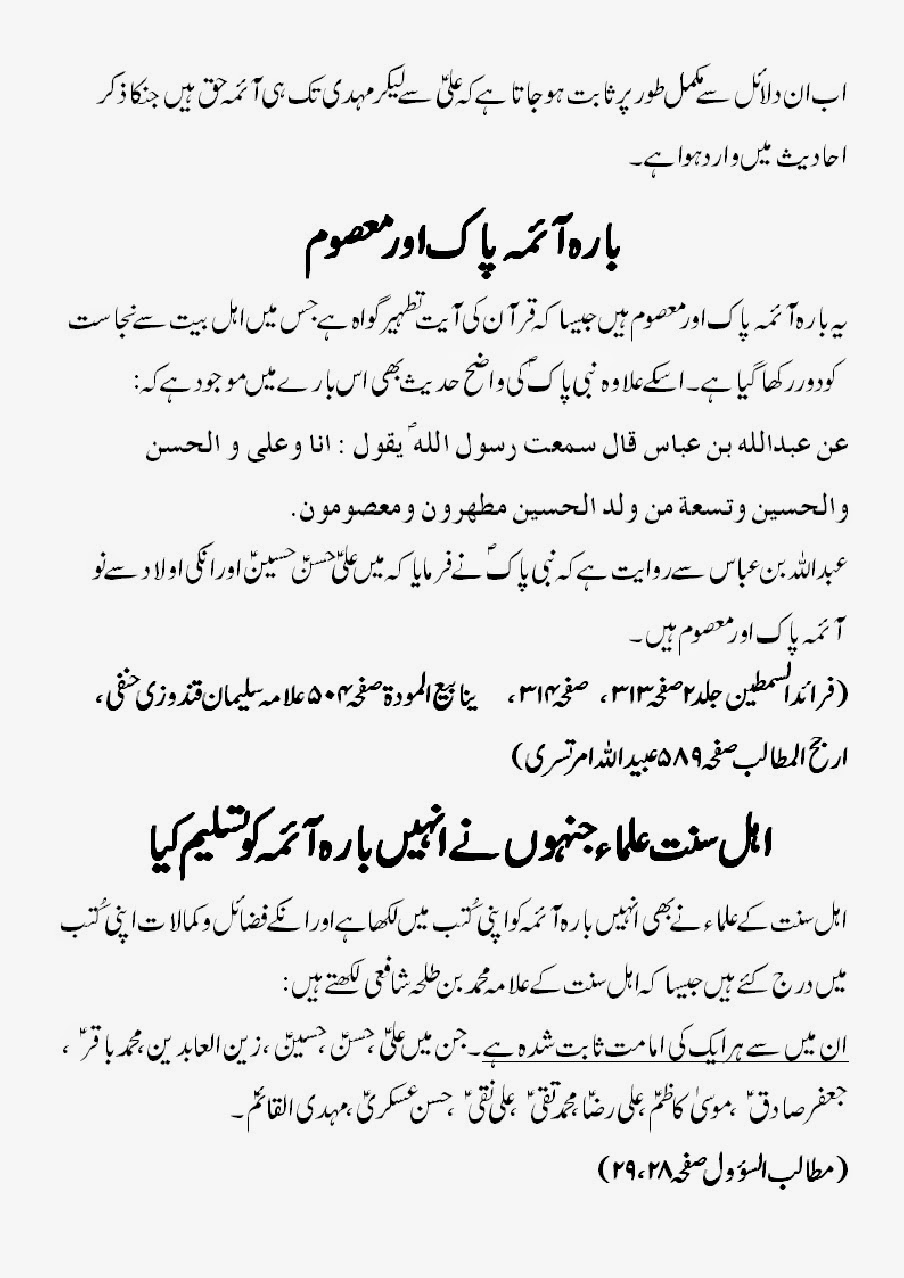 اب ان دلائل سے مکمل طور پر ثابت ہو جاتا ہے کہ علیؑ سے لیکر مہدی تک ہی آئمہ حق ہیں جنکا ذکر
احادیث میں وارد ہوا ہے۔
بارہ آئمہ پاک اور معصوم
یہ بارہ آئمہ پاک اور معصوم ہیں جیسا کہ قرآن کی آیت تطہیر گواہ ہے جس میں اہل بیت سے نجاست
کو دور رکھا گیا ہے۔ اسکے علاوہ نبی پاکؐ کی واضح حدیث بھی اس بارے میں موجود ہے کہ:
عن عبدالله بن عباس قال سمعت رسول اللهؐ يقول : انا وعلى و الحسن
والحسين وتسعة من ولد الحسين مطهرون ومعصومون.
عبداللہ بن عباس سے روایت ہے کہ نبی پاکؐ نے فرمایا کہ میں علیؑ حسنؑ حسینؑ اور انکی اولاد سے نو
آئمہ پاک اور معصوم ہیں۔
(فرائد السمطین جلد ۲ صفحہ ۳۱۳، صفحہ ۳۱۴، ینابیع المودۃ صفحہ ۵۰۴ علامہ سلیمان قندوزی حنفی،
ارجح المطالب صفحہ ۵۸۹ عبید اللہ امرتسری)
اہل سنت علماء جنہوں نے انہیں بارہ آئمہ کو تسلیم کیا
اہل سنت کے علماء نے بھی انہیں بارہ آئمہ کو اپنی کُتب میں لکھا ہے اور انکے فضائل و کمالات اپنی کُتب
میں درج کئے ہیں جیسا کہ اہل سنت کے علامہ محمد بن طلحہ شافعی لکھتے ہیں:
ان میں سے ہر ایک کی امامت ثابت شدہ ہے۔ جن میں علیؑ، حسنؑ، حسینؑ، زین العابدین، محمد باقرؑ،
جعفر صادقؑ، موسیٰ کاظمؑ، علی رضاؑ، محمد تقیؑ، علی نقیؑ، حسن عسکریؑ، مہدی القائمؑ۔
(مطالب السؤول صفحہ ۲۸، ۲۹)